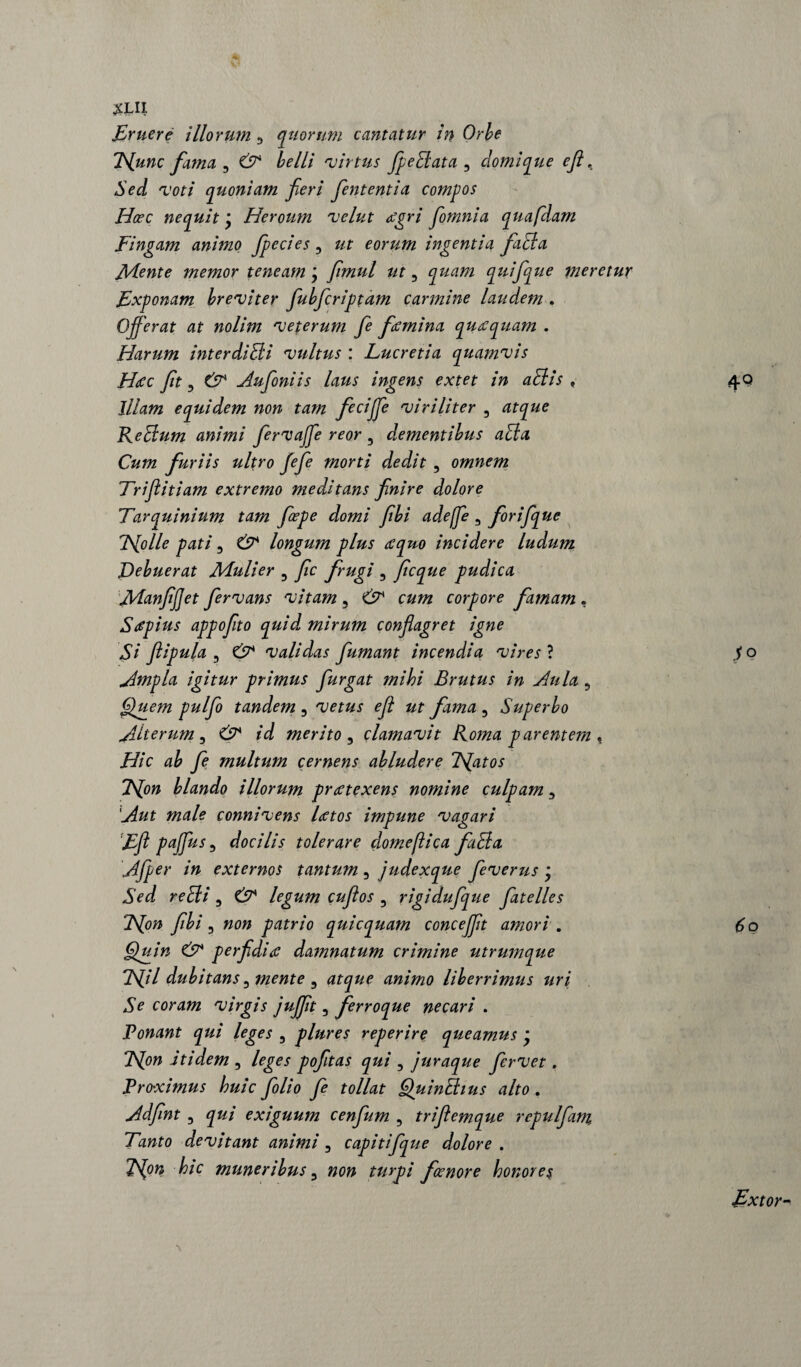 XLII
Eruere illorum, quorum cantatur in Orbe
Nunc fama, & belli virtus spectata, domique est.
Sed voti quoniam fieri sententia compos
Hœc nequit; Heroum velut ægri somnia quasdam
Fingam animo species, ut eorum ingentia facta
Mente memor teneam; simul ut, quam quisque meretur
Exponam breviter subscriptam carmine laudem.
Offerat at nolim veterum se fæmina quæquam.
Harum interdicti vultus: Lucretia quamvis
Hæc sit, & Ausoniis laus ingens extet in actis, 40
Illam equidem non tam fecisse viriliter, atque
Rectum animi servasse reor, dementibus acta
Cum furiis ultro sese morti dedit, omnem
Tristitiam extremo meditans finire dolore
Tarquinium tam sœpe domi sibi adesse, forisque
Nolle pati, & longum plus æquo incidere ludum
Debuerat Mulier, sic frugi, sicque pudica
Mansisset servans vitam, & cum corpore famam.
Sæpius apposito quid mirum conflagret igne
Si stipula, & validas fumant incendia vires? 50
Ampla igitur primus surgat mihi Brutus in Aula,
Quem pulso tandem, vetus est ut fama, Superbo
Alterum, & id merito, clamavit Roma parentem.
Hic ab se multum cernens abludere Natos
Non blando illorum prætexens nomine culpam,
Aut male connivens lætos impune vagari
Est passus, docilis tolerare domestica facta
Asper in externos tantum, judexque severus;
Sed recti, & legum custos, rigidusque satelles
Non sibi, non patrio quicquam concessit amori. 60
Quin & perfidiæ damnatum crimine utrumque
Nil dubitans, mente, atque animo liberrimus uri
Se coram virgis jussit, ferroque necari.
Ponant qui leges, plures reperire queamus;
Non itidem, leges positas qui, juraque servet.
Proximus huic solio se tollat Quinctius alto.
Adsint, qui exiguum censum, tristemque repulsam
Tanto devitant animi, capitisque dolore.
Non hic muneribus, non turpi fœnore honores
Extor-